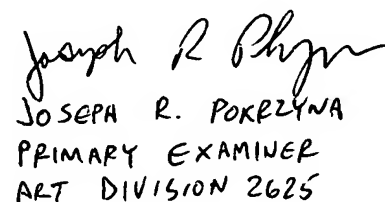 Joseph R
JOSEPH R. POKRZYNA
PRIMARY EXAMINER
ART DIVISION 2625